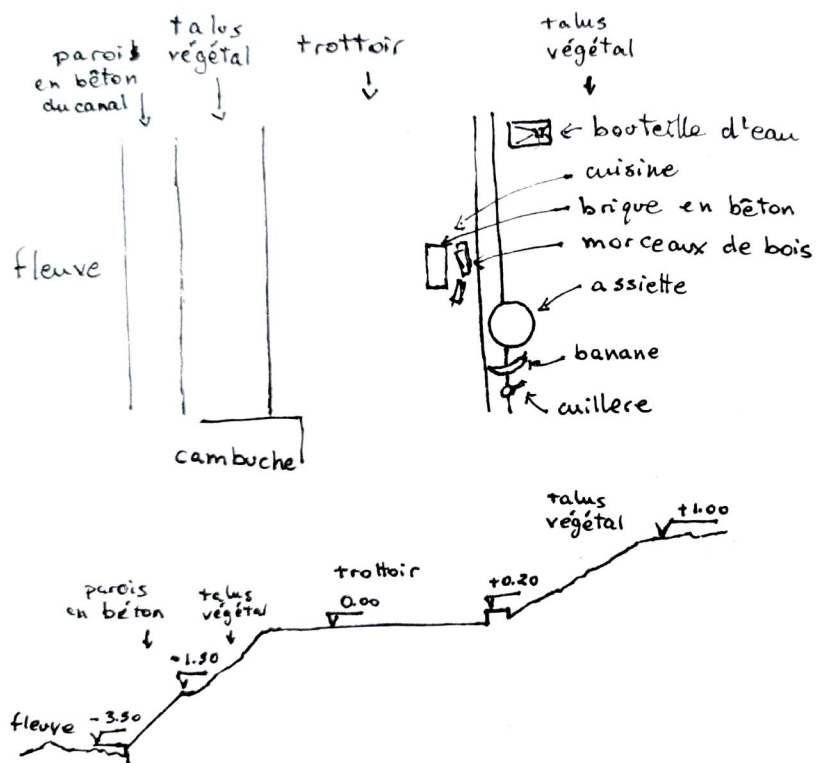 parois
en bêton
du canal
talus
végétal
trottoir
talus
végétal
bouteille d'eau
cuisine
brique en bêton
morceaux de bois
assiette
banane
cuillere
fleuve
cambuche
talus
végétal
+1.00
trottoir
+0.20
0.00
parois
en béton
talus
végétal
-1.50
fleuve
-3.50